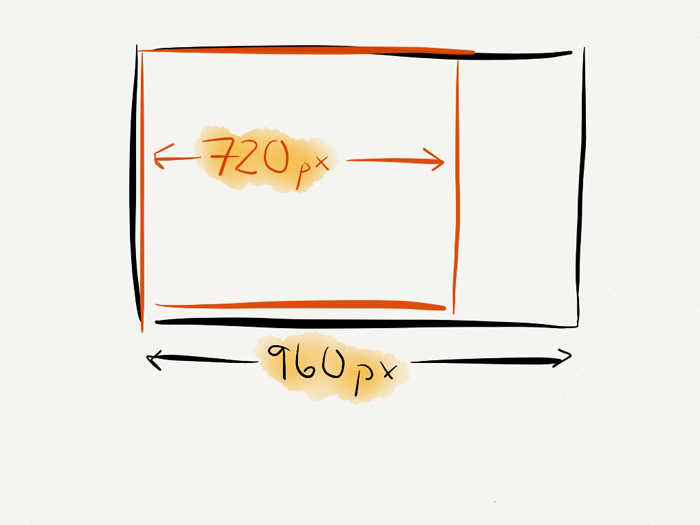 720px
960px